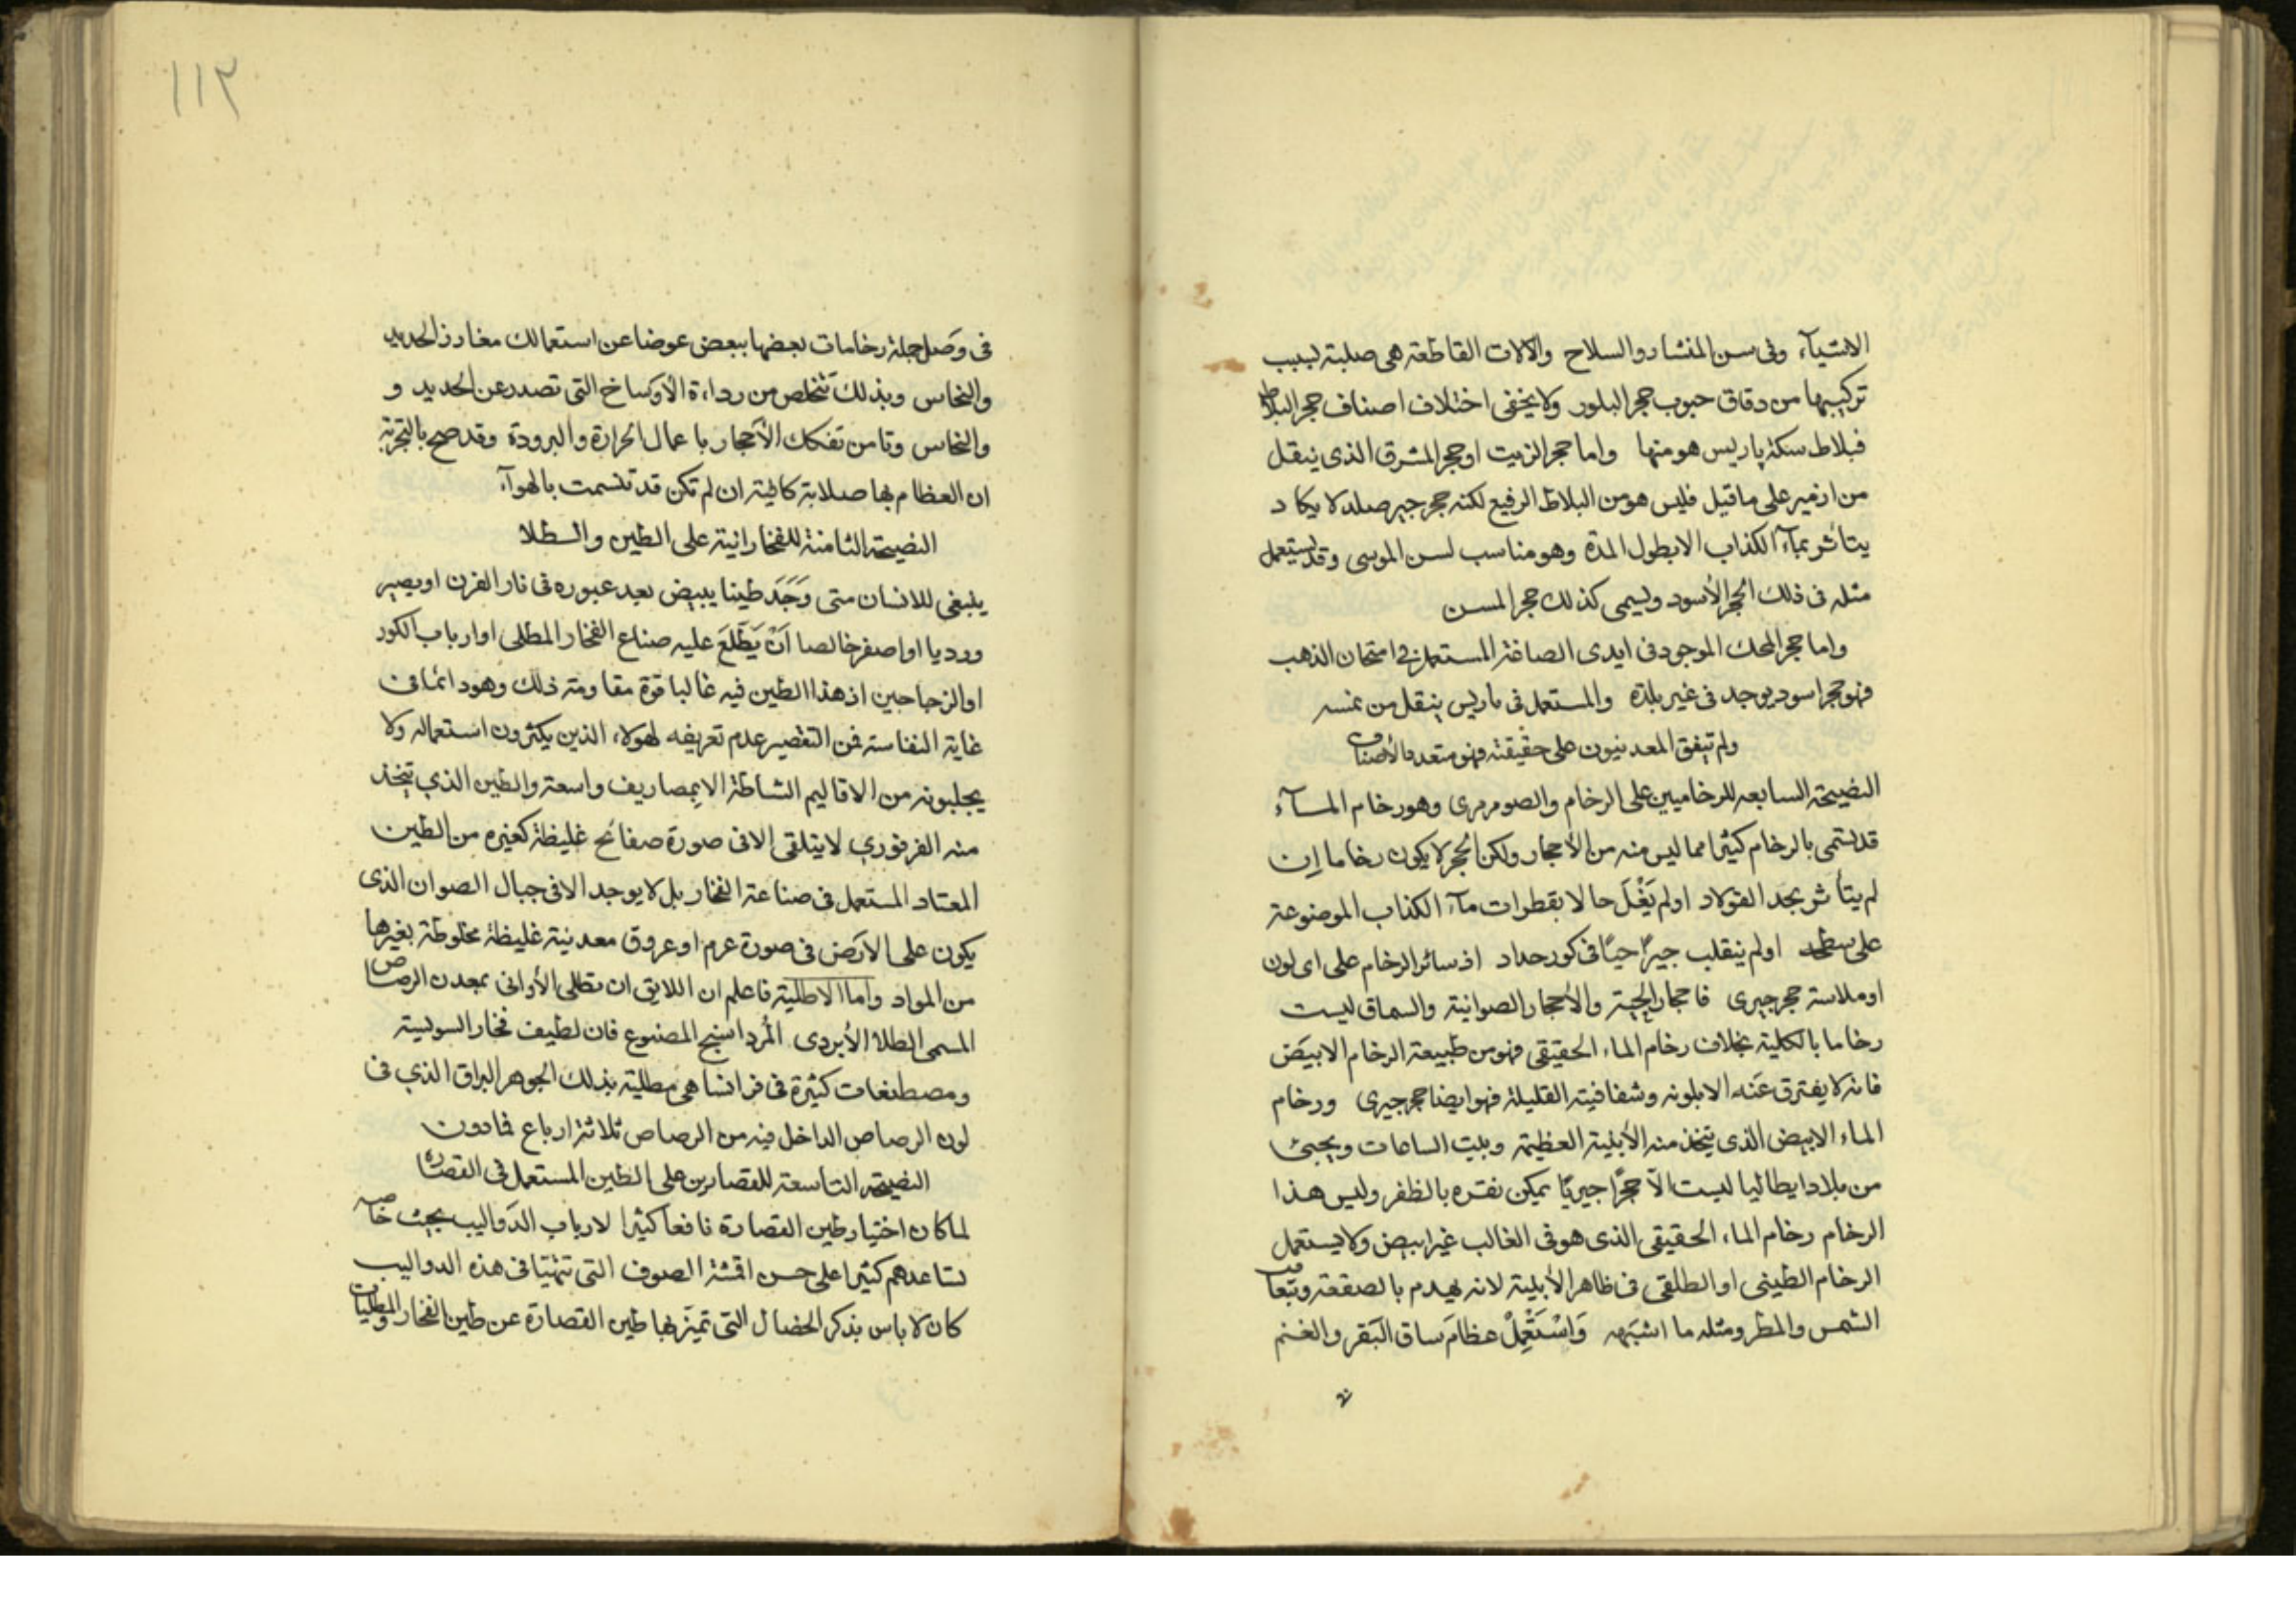 الاشيآء وفى سن المنشار والسلاح والالات القاطعة هى صلبة لسبب
تركيبها من دقاق حبوب حجر البلور ولا يخفى اختلاف اصناف حجر البلاط
فبلاط سكة پاريس هو منها واما حجر الزيت او حجر المشرق الذى ينقل
من ازمير على ما قيل فليس هو من البلاط الرفيع لكنه حجر جير صلد لا يكاد
يتأثر بمآء الكذاب الا بطول المدة وهو مناسب لسن الموسى وقد يستعمل
مثله فى ذلك الحجر الأسود ويسمى كذلك حجر المسن
واما حجر المحك الموجود فى ايدى الصاغة المستعمل فى امتحان الذهب
فهو حجر اسود يوجد فى غير بلدة والمستعمل فى باريس ينقل من نمسه
ولم تيفق المعدنيون على حقيقته فهو متعدد الأصناف
النصيحة السابعه للرخاميين على الرخام والصومرمرى وهو رخام المسآء
قد تسمى بالرخام كثيرا مما ليس منه من الأحجار ولكن الحجر لا يكون رخاما إن
لم يتأثر بحد الفولاد او لم يَغْلَ حالا بقطرات مآء الكذاب الموضوعة
على سطحه او لم ينقلب جيرًا حيًا فى كور حداد اذ سائر الرخام على اى لون
او ملاسة حجر جيرى فاحجار الجبة والأحجار الصوانية والسماق ليست
رخاما بالكلية بخلاف رخام الماء الحقيقى فهو من طبيعة الرخام الابيض
فانه لا يفترق عنه الا بلونه وشفافيته القليلة فهو ايضا حجر جيرى ورخام
الماء الابيض الذى تتخذ منه الأبنية العظيمة وبيت الساعات ويجيئ
من بلاد ايطاليا ليست الا حجرًا جيريًا يمكن نقره بالظفر وليس هذا
الرخام رخام الماء الحقيقى الذى هو فى الغالب غير ابيض ولا يستعمل
الرخام الطينى او الطلقى فى ظاهر الأبنية لانه يهدم بالصقعة وتعاقب
الشمس والمطر ومثله ما اشبهه وَاسْتَعْمِلْ عظامَ ساق البَقر والغنم
١١٢
فى وَصَل جملة رخامات بعضها ببعض عوضا عن استعمالك مغارز الحديد
والنحاس وبذلك تتخلص من رداءة الأوساخ التى تصدر عن الحديد و
والنحاس وتامن تفكك الأحجار باعمال الحرارة والبرودة وقد صح بالتجربة
ان العظام بها صلابة كافية ان لم تكن قد تشمت بالهوآء
النصيحة الثامنة للفخارانية على الطين والطلا
ينبغى للانسان متى وَجَدَ طينا يبيض بعد عبوره فى نار الفرن او يصير
ورديا او اصفر خالصا اَنْ يَطَّلِعَ عليه صناع الفخار المطلى او ارباب الكور
او الزجاجين اذ هذا الطين فيه غالبا قوة مقاومة ذلك وهو دائما فى
غاية النفاسة فمن التقصير عدم تعريفه لهولاء الذين يكثرون استعماله ولا
يجلبونه من الاقاليم الشاطة الا بمصاريف واسعة والطين الذي تتخذ
منه الفرفوري لا يتلقى الا فى صورة صفائح غليظة كغيره من الطين
المعتاد المستعمل فى صناعة الفخار بل لا يوجد الا فى جبال الصوان الذى
يكون على الارض فى صورة عرم او عروق معدنية غليظة مخلوطة بغيرها
من المواد واما الاطلية فاعلم ان اللايق ان تطلى الأوانى بمعدن الرصاص
المسمى الطلا الأبردى المُرداسنج المصنوع فان لطيف فخار السويسية
ومصطنعات كثيرة فى فرانسا هى مطلية بذلك الجوهر البراق الذي فى
لون الرصاص الداخل فيه من الرصاص ثلاثة ارباع فادون
النصيحة التاسعة للقصارين على الطين المستعمل فى القصارة
لما كان اختيار طين القصارة نافعا كثيرا لارباب الدَواليب بحيث خاصة
تساعدهم كثيرا على حسن اقمشة الصوف التى تتهيا فى هذه الدواليب
كان لا باس بذكر الخصال التى تميز بها طين القصارة عن طين الفخار والمطليات